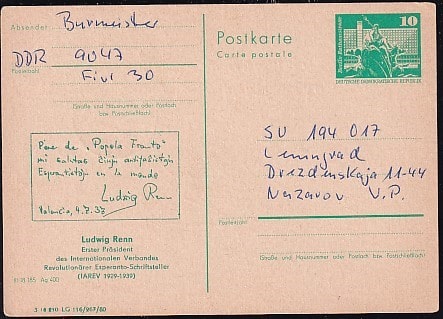 Absender: Burmeister
DDR 9047
Postleitzahl
Fivl 30
(Straße und Hausnummer oder Postfach
bzw. Postschließfach)
Postkarte
Carte postale
10
DEUTSCHE DEMOKRATISCHE REPUBLIK
SU 194 017
Leningrad
Drezdenskaja 11-44
Nazarov V.P.
Postleitzahl
(Straße und Hausnummer oder Postfach bzw. Postschließfach)
Pere de „Popola Fronto“
mi salutas ĉiujn antifaŝistajn
Esperantistojn en la mondo
Ludwig Renn
Valencio, 4.7.37
Ludwig Renn
Erster Präsident
des Internationalen Verbandes
Revolutionärer Esperanto-Schriftsteller
(IAREV 1929-1939)
III 18 185 Ag 400
3 16 810 LG 116/967/80